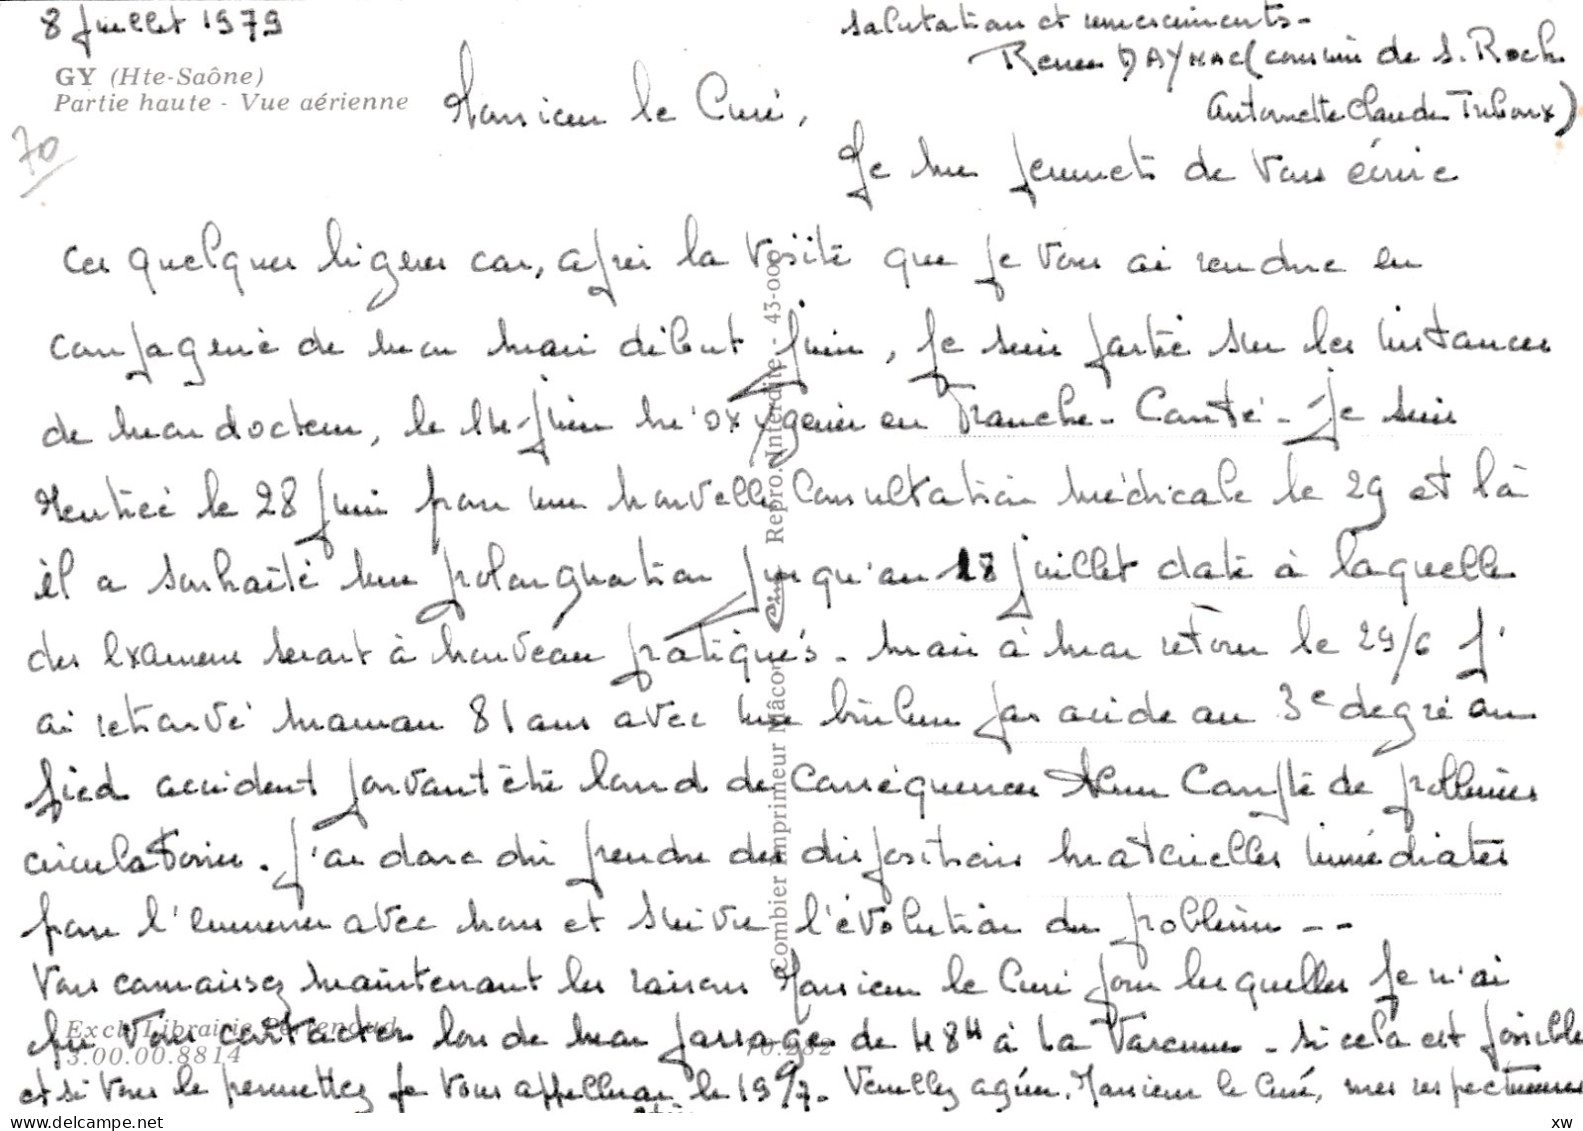 8 Juillet 1979
GY (Hte-Saône)
Partie haute - Vue aérienne
70
Monsieur le Curé,
Je me permets de vous écrire
ces quelques lignes car, après la visite que je vous ai rendue en
compagnie de mon mari début juin, je suis partie sur les instances
de mon docteur, le 11 juin m'oxygéner en Franche-Comté - Je suis
rentrée le 28 juin pour une nouvelle consultation médicale le 29 et là
il a souhaité une prolongation jusqu'au 18 juillet date à laquelle
des examens seront à nouveau pratiqués - mais à mon retour le 29/6 j'
ai retrouvé maman 81 ans avec une brûlure par acide au 3e degré au
pied accident pouvant être lourd de conséquences tenu compte de problèmes
circulatoires. J'ai donc dû prendre des dispositions matérielles immédiates
pour l'emmener avec nous et suivre l'évolution du problème --
Vous connaissez maintenant les raisons Monsieur le Curé pour lesquelles je n'ai
pu vous contacter lors de mon passage de 48H à La Varenne - si cela est possible
et si vous le permettez je vous appellerai le 19/7. Veuillez agréer, Monsieur le Curé, mes respectueuses
salutations et remerciements -
Renée DAYNAC (cousine de S. Roch
Antoinette Claude Tuboux)
Combier Imprimeur Mâcon Cim Repro. Interdite - 43-000
Excl. Librairie
3.00.00.8814
70.282
www.delcampe.net
xw